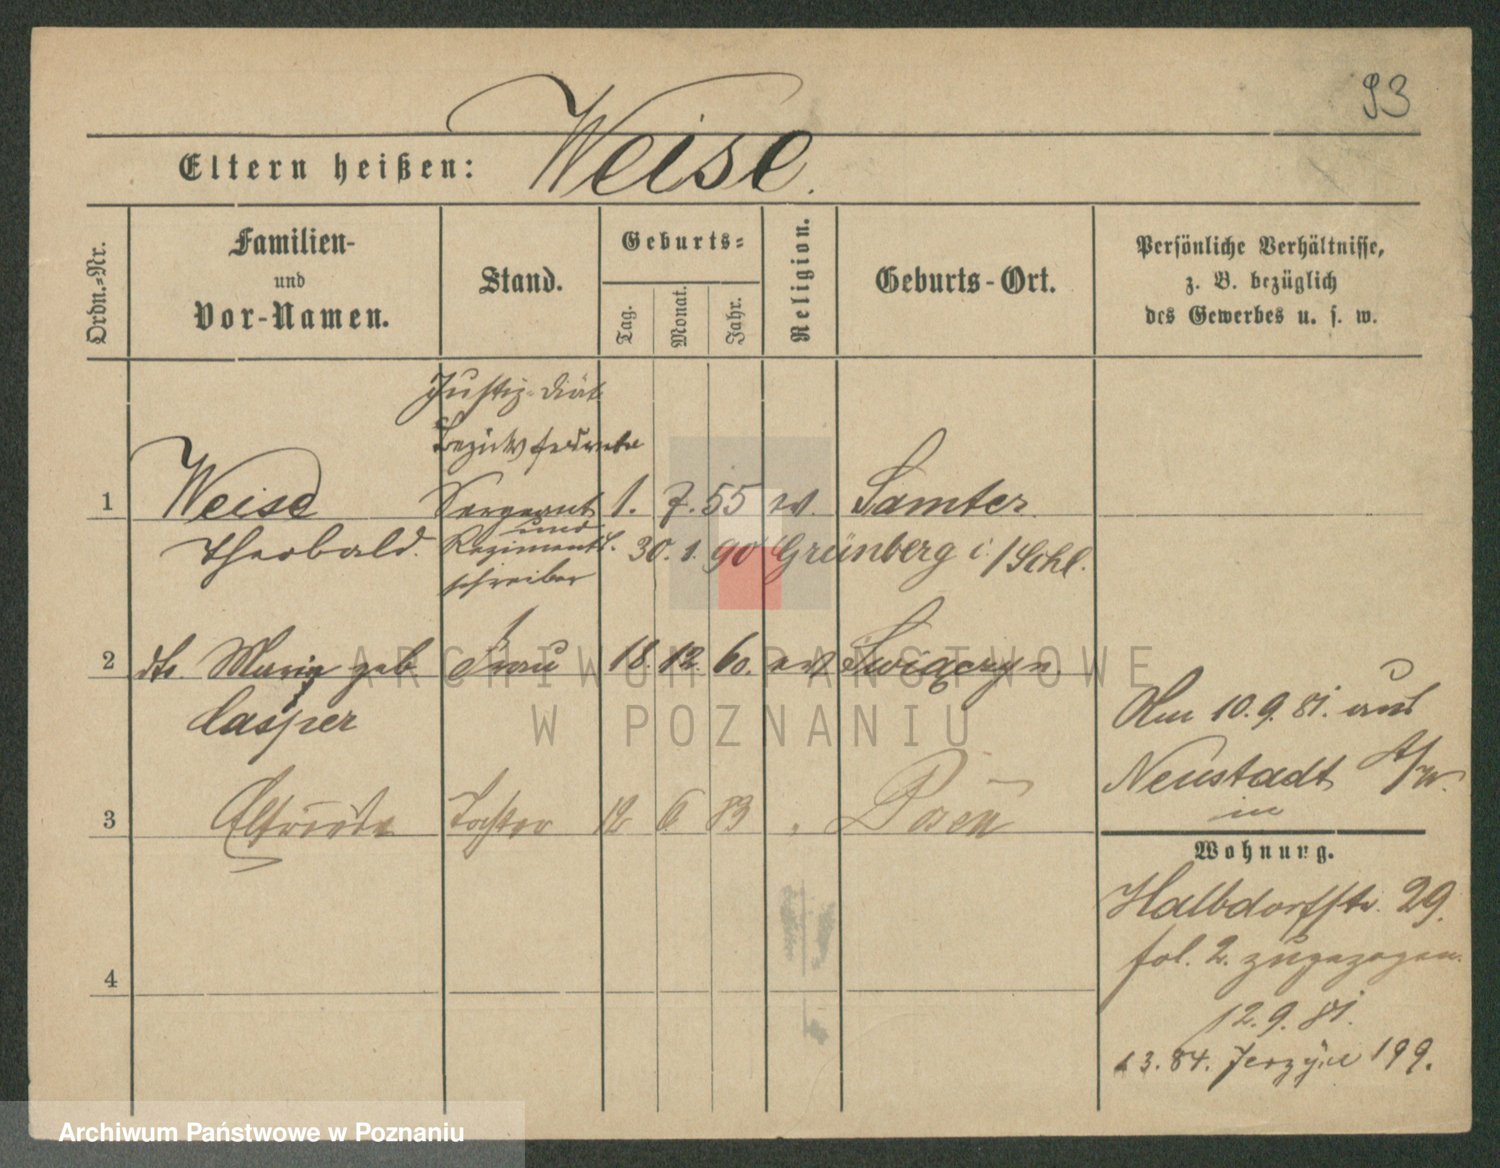 93
Eltern heißen: Weise.
Ordn.-Nr.
Familien-
und
Vor-Namen.
Stand.
Geburts-
Tag.
Monat.
Jahr.
Religion.
Geburts-Ort.
Persönliche Verhältnisse,
z. B. bezüglich
des Gewerbes u. s. w.
Justiz-Diät
1 Weise Sergeant 1. 7. 55 ev. Samter
und
Theobald. Regiments- 30. 1. 90 Grünberg i/Schl.
schreiber
2 dto. Maria geb Frau 18. 12. 60. ev
Casper
3 Tochter 12 6 83 Posen
4
Am 10. 9. 81. aus
Neustadt
Wohnung.
Halbdorfstr. 29.
fol. 2. zugezogen.
12. 9. 81.
3. 84. Jerzyce 199.
ARCHIWUM PAŃSTWOWE
W POZNANIU
Archiwum Państwowe w Poznaniu